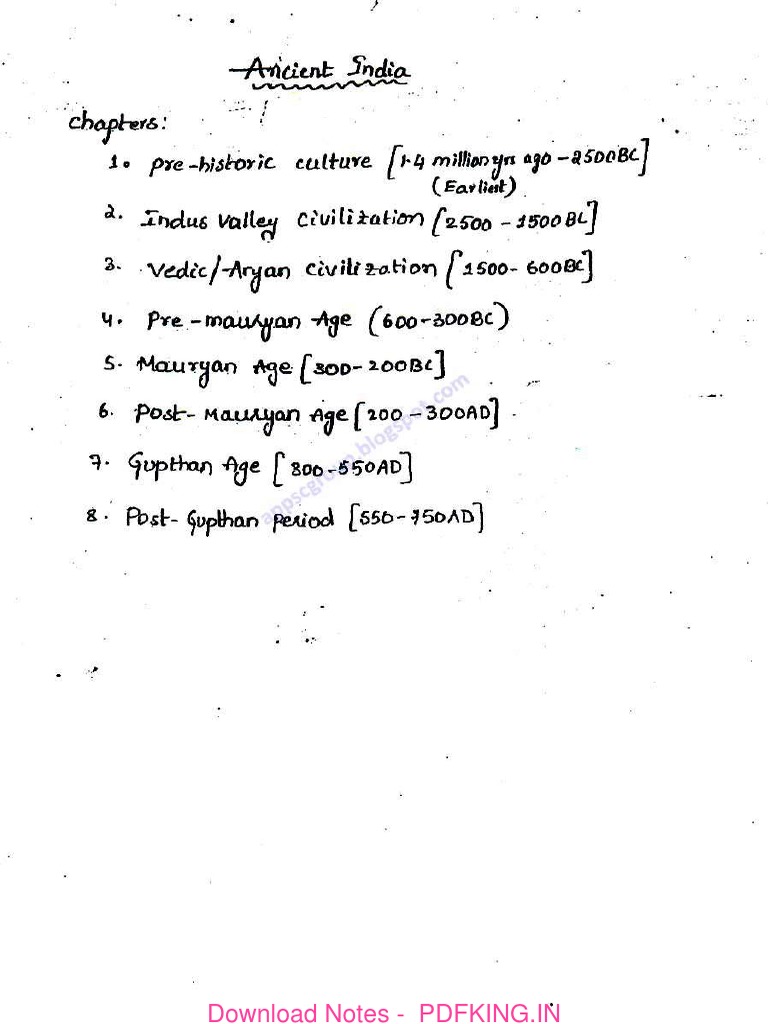 Ancient India
chapters:
1. Pre-historic culture [1.4 million yrs ago - 2500BC]
(Earliest)
2. Indus Valley Civilization [2500 - 1500BC]
3. Vedic/Aryan Civilization [1500-600BC]
4. Pre-mauryan Age (600-300BC)
5. Mauryan Age [300-200BC]
6. Post-Mauryan Age [200-300AD]
7. Gupthan Age [300-550AD]
8. Post-Gupthan Period [550-750AD]
appscgroup.blogspot.com
Download Notes - PDFKING.IN